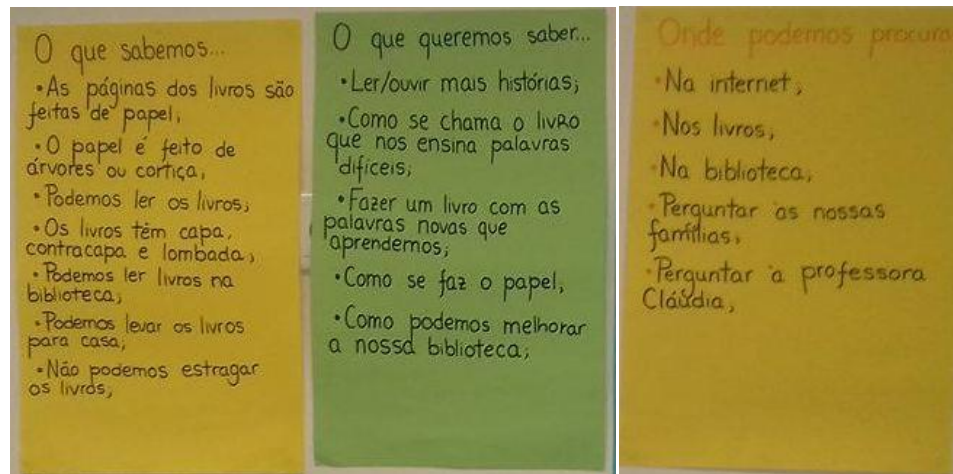 O que sabemos...
•As páginas dos livros são
feitas de papel;
•O papel é feito de
árvores ou cortiça;
•Podemos ler os livros;
•Os livros têm capa,
contracapa e lombada;
•Podemos ler livros na
biblioteca;
•Podemos levar os livros
para casa;
•Não podemos estragar
os livros;
O que queremos saber...
•Ler/ouvir mais histórias;
•Como se chama o livro
que nos ensina palavras
difíceis;
•Fazer um livro com as
palavras novas que
aprendemos;
•Como se faz o papel;
•Como podemos melhorar
a nossa biblioteca;
Onde podemos procura
•Na internet;
•Nos livros;
•Na biblioteca;
•Perguntar às nossas
famílias;
•Perguntar à professora
Cláudia;